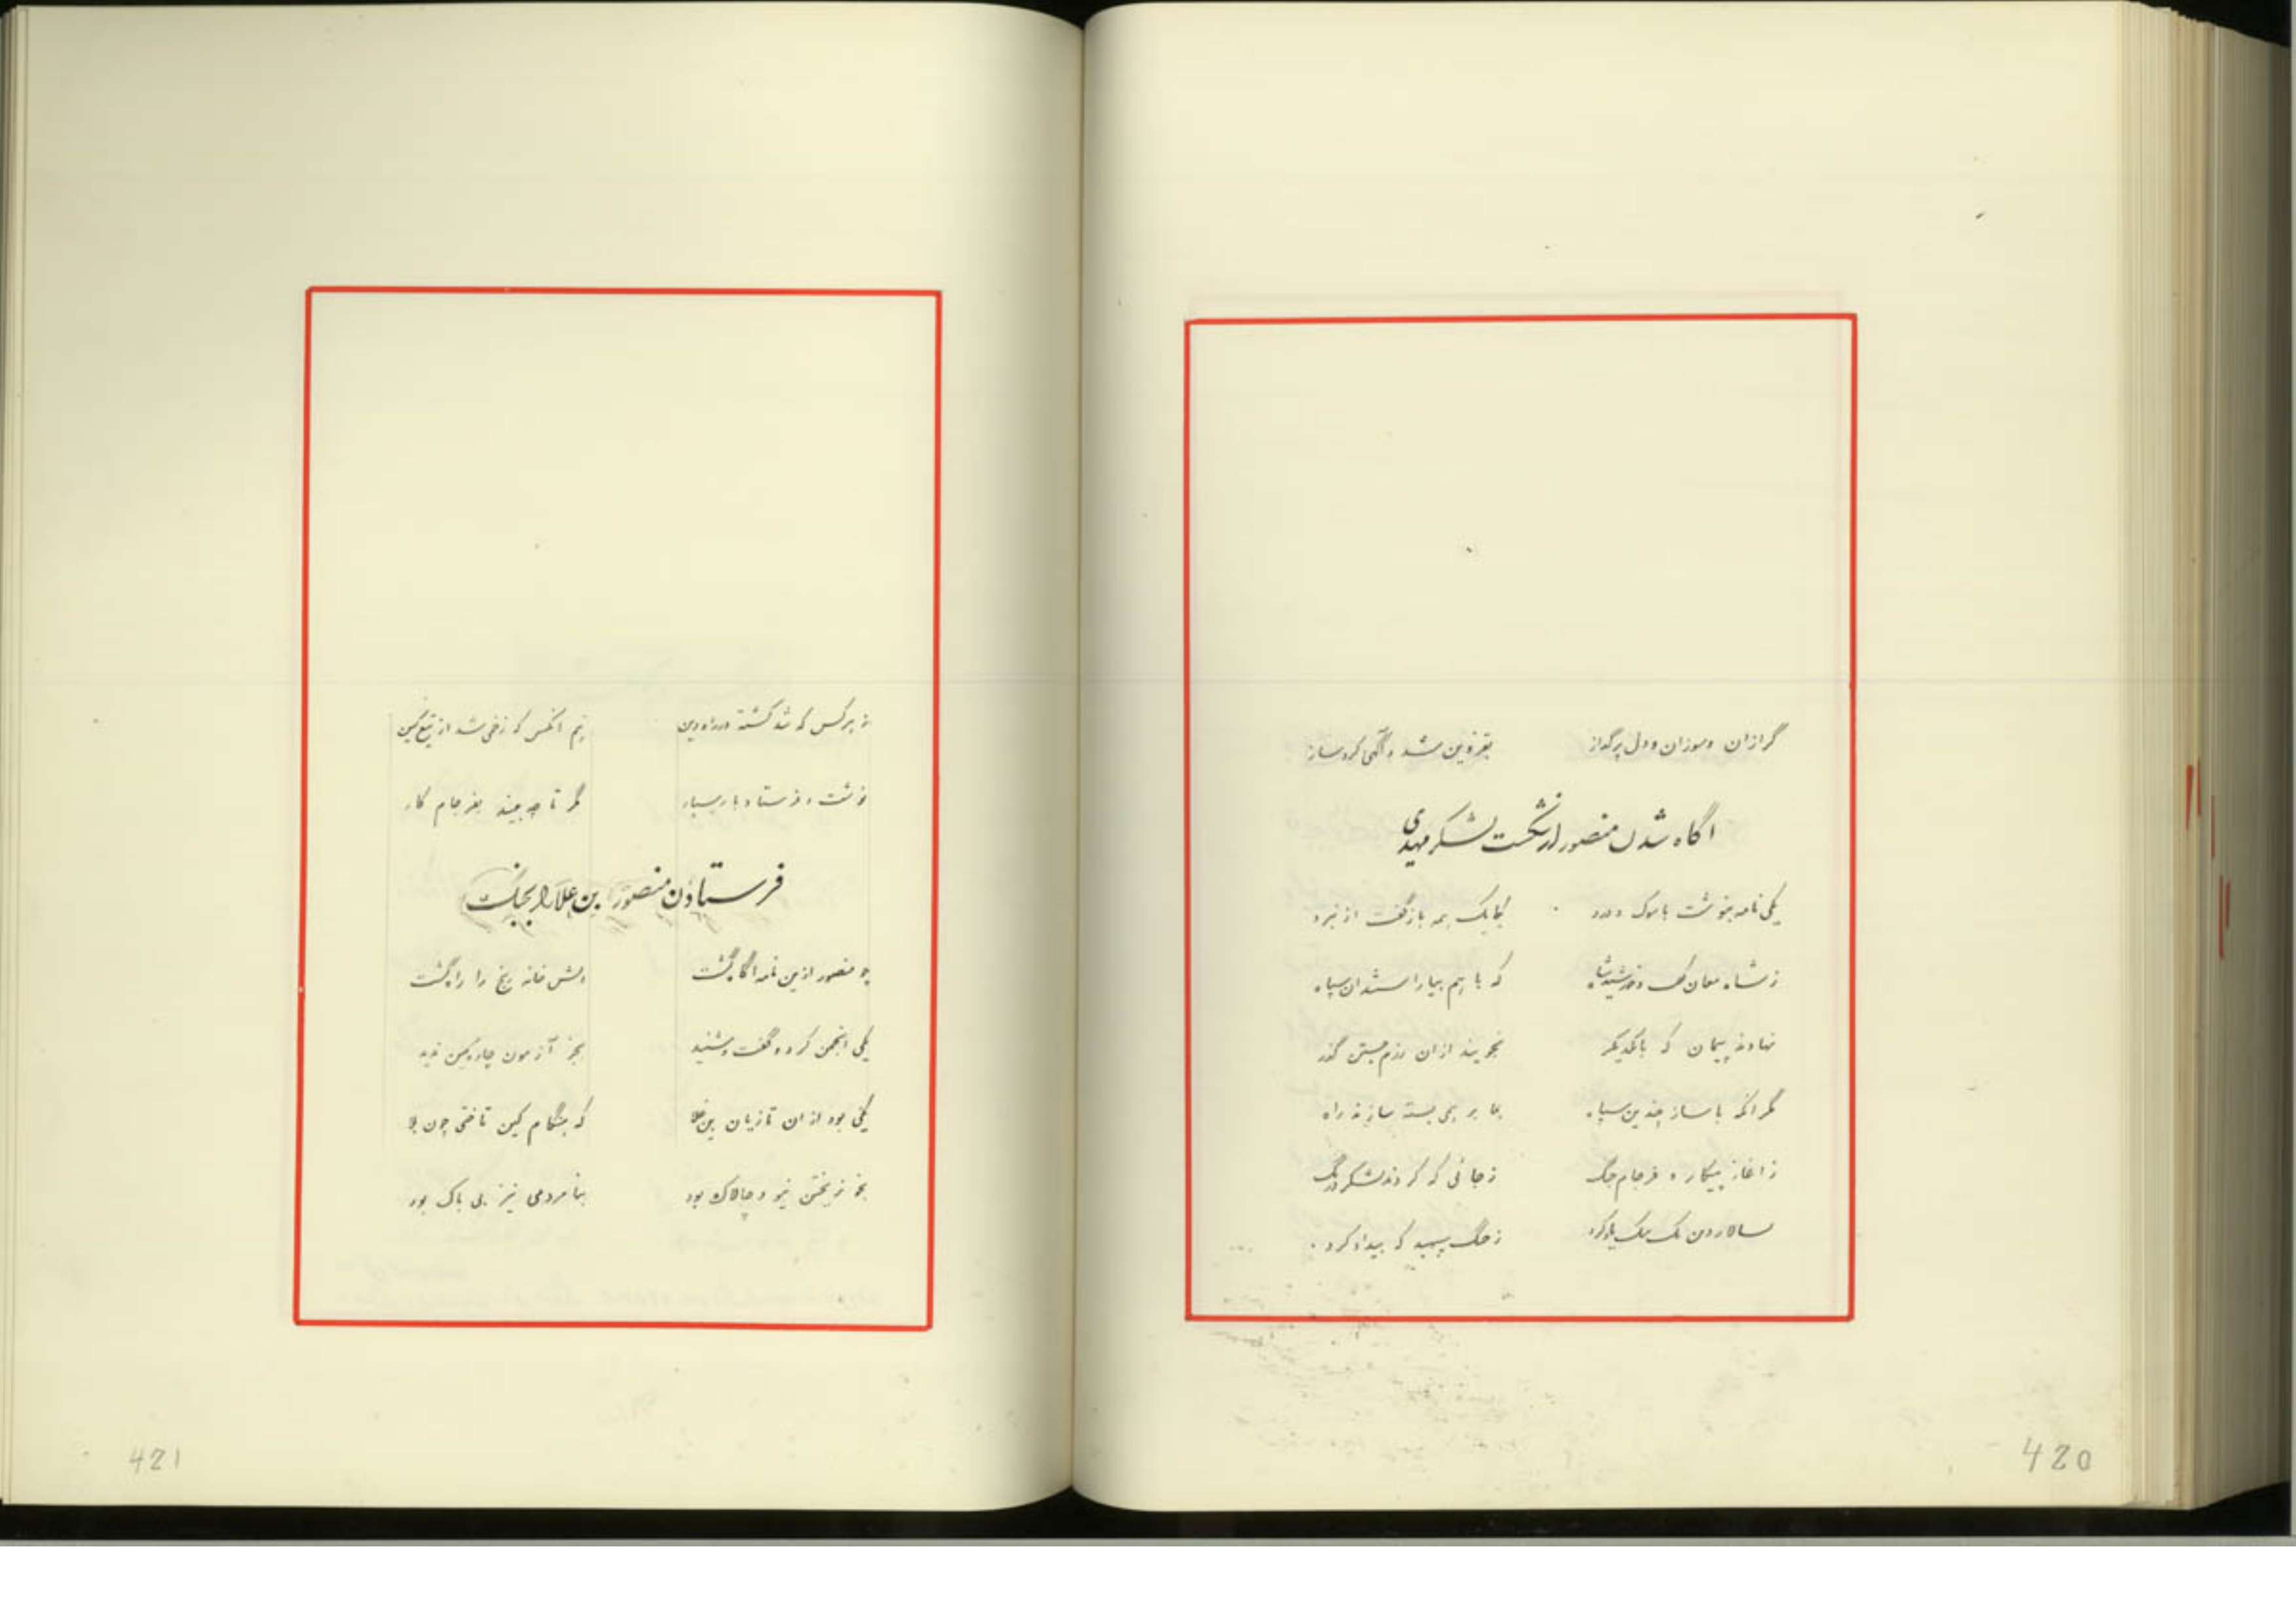 گرازان و سوزان و دل پرگداز بقزوین شد و آگهی کرد ساز
اگاه شدن منصور از شکست لشکر مهدی
یکی نامه بنوشت با سوک و درد یکایک همه بازگفت از نبرد
ز شاه مغان و خورشید شاه که با هم بیاراستند آن سپاه
نهادند پیمان که با یکدیگر نجویند ازان رزم جستن گذر
مگر آنکه با ساز چندین سپاه بما بر همی بسته سازند راه
ز اغاز پیکار و فرجام جنگ ز جائی که کردند لشکر درنگ
سالار دون یک بیک یاد کرد ز جنگ سپهبد که بیداد کرد
420
ز هر کس که شد کشته در راه دین هم انکس که زخمی شد از تیغ کین
نوشت و فرستاد با رسپار مگر تا چه بیند بفرجام کار
فرستادن منصور بن علا را بجنگ
چو منصور ازین نامه اگاه گشت دلش خانه رنج را راه گشت
یکی انجمن کرد و گفت و شنید بجز آزمون چاره کین ندید
یکی بود از ان تازیان بن علا که هنگام کین تاختی چون بلا
بخونریختن نیو و چالاک بود بنامردمی نیز بی باک بود
421